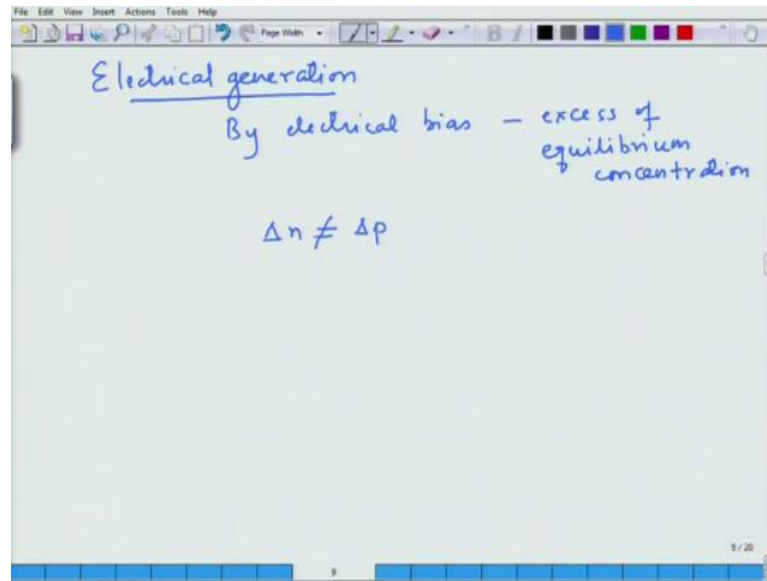 File Edit View Insert Actions Tools Help
Page Width
B I
Electrical generation
By electrical bias – excess of
equilibrium
concentration
Δn ≠ Δp
9/20
9